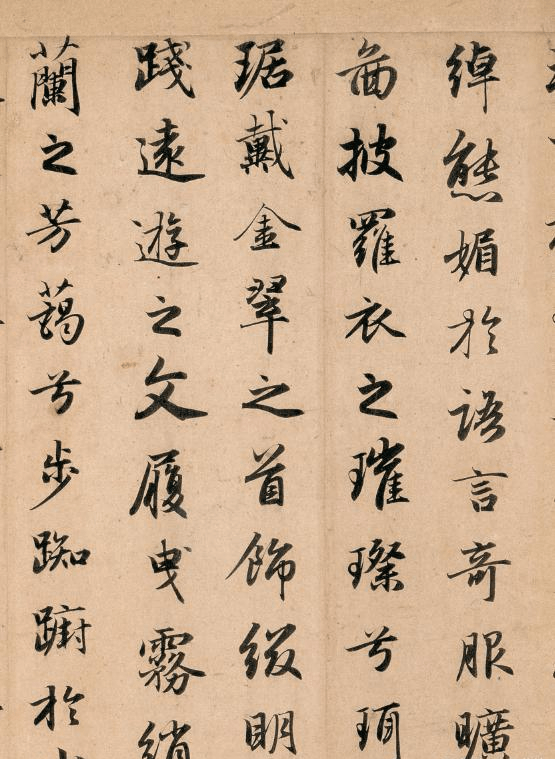 綽態媚於語言奇服曠
啚披羅衣之璀璨兮珥
琚戴金翠之首飾綴明
踐遠遊之文履曳霧綃
蘭之芳藹兮步踟躕於